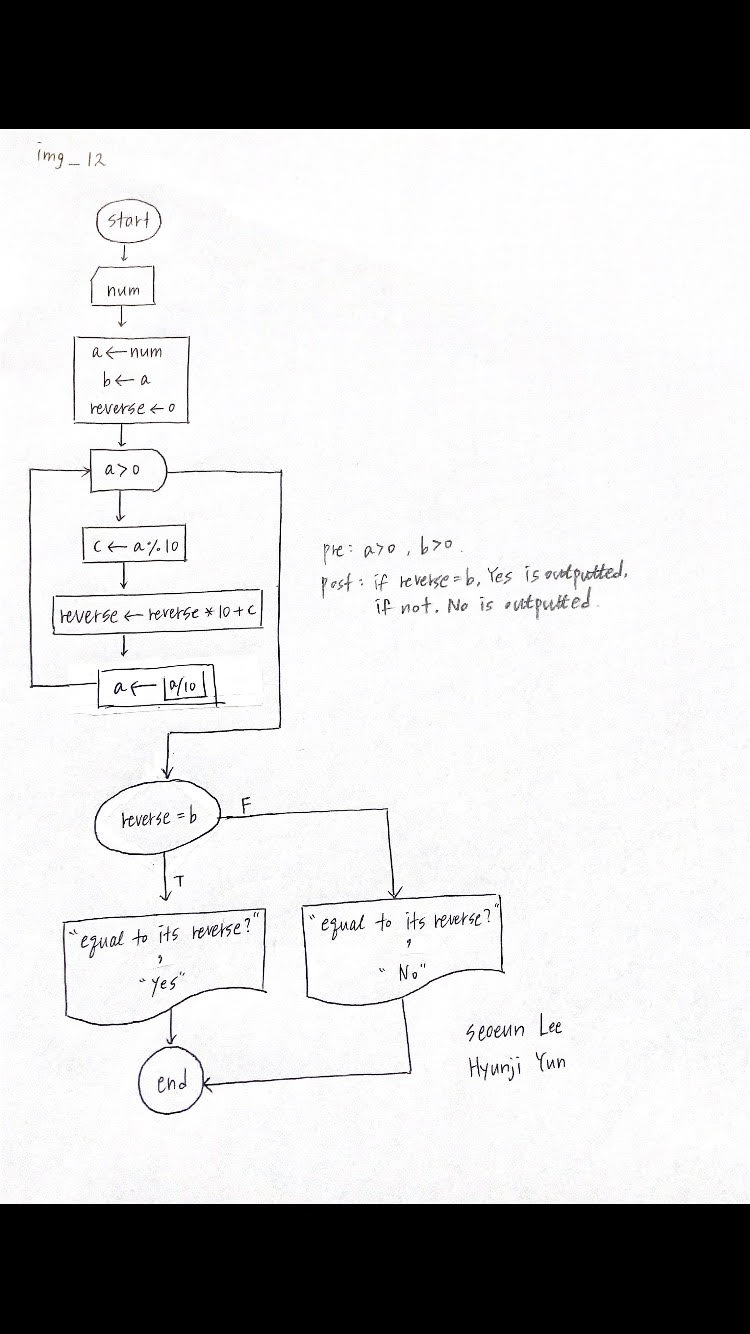 img_12
start
num
a ← num
b ← a
reverse ← 0
a > 0
c ← a % 10
reverse ← reverse * 10 + c
a ← ⌊a/10⌋
pre: a>0, b>0.
post: if reverse=b, Yes is outputted,
if not. No is outputted.
reverse = b
F
T
"equal to its reverse?"
,
"Yes"
"equal to its reverse?"
,
"No"
end
Seoeun Lee
Hyunji Yun